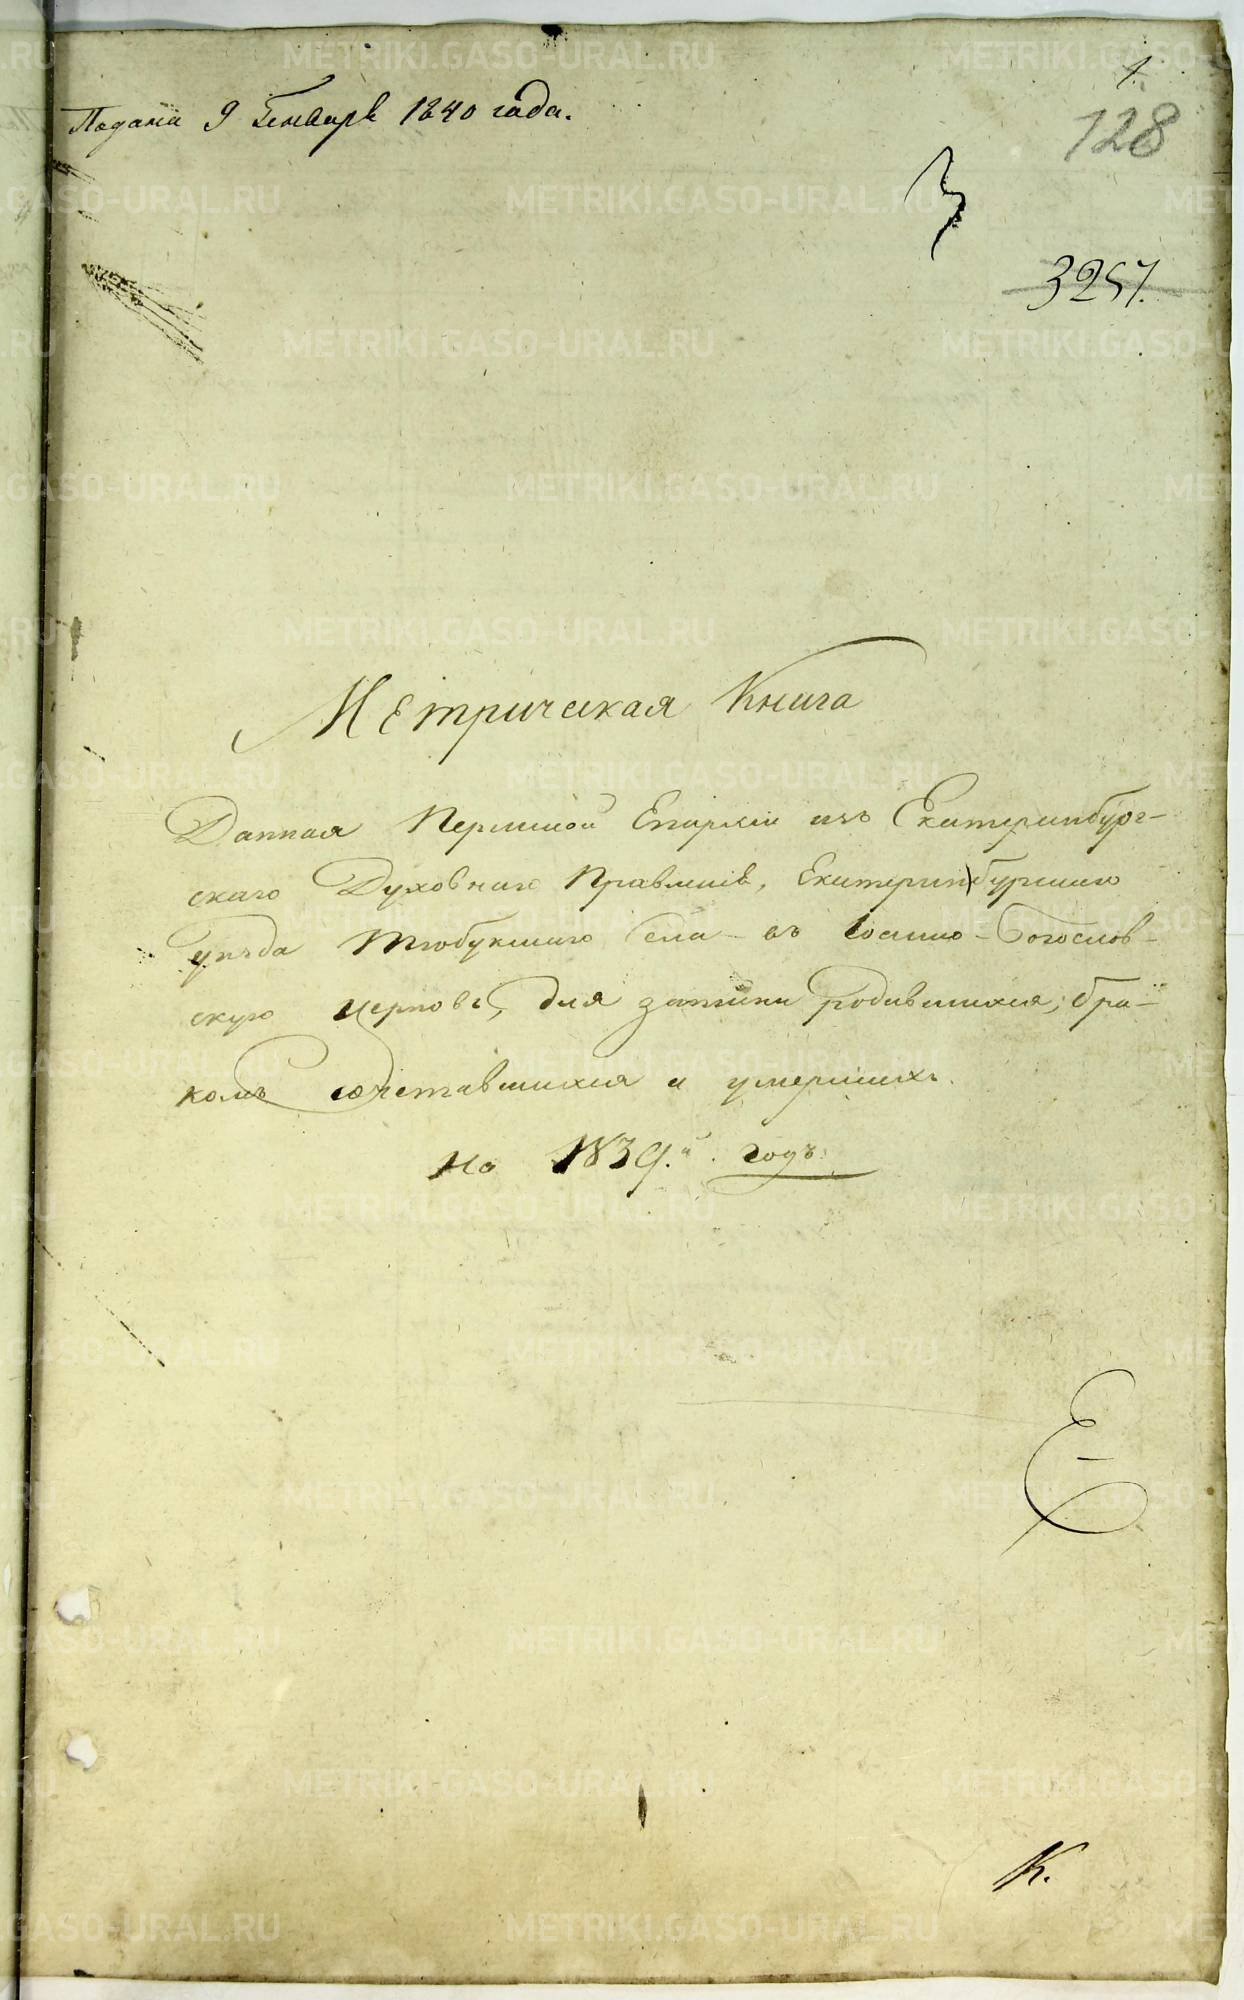 Подана 9 Генваря 1840 года.
1.
128
3257.
Метрическая Книга
Данная Пермской Епархіи изъ Екатеринбург-
скаго Духовнаго Правленія, Екатеринбургскаго
уезда Тюбукскаго села - въ Іоанно-Богослов-
скую церковь, для записки родившихся, бра-
комъ сочетавшихся и умершихъ.
На 1839.й годъ.
К.